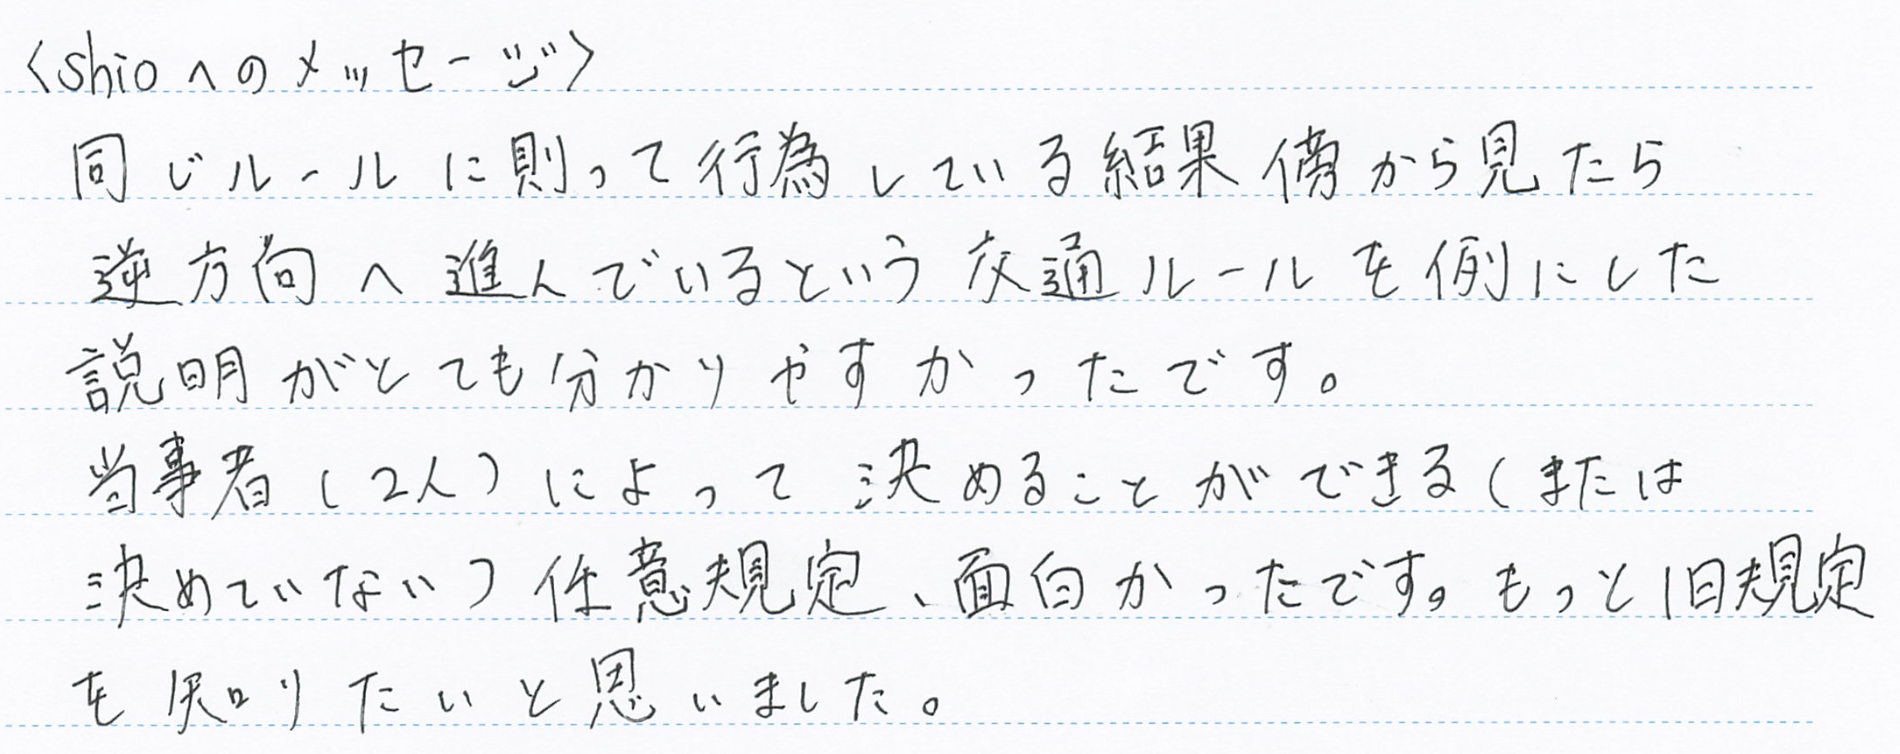 〈shioへのメッセージ〉
同じルールに則って行為している結果傍から見たら
逆方向へ進んでいるという交通ルールを例にした
説明がとても分かりやすかったです。
当事者(2人)によって決めることができる(または
決めていない)任意規定、面白かったです。もっと旧規定
を知りたいと思いました。